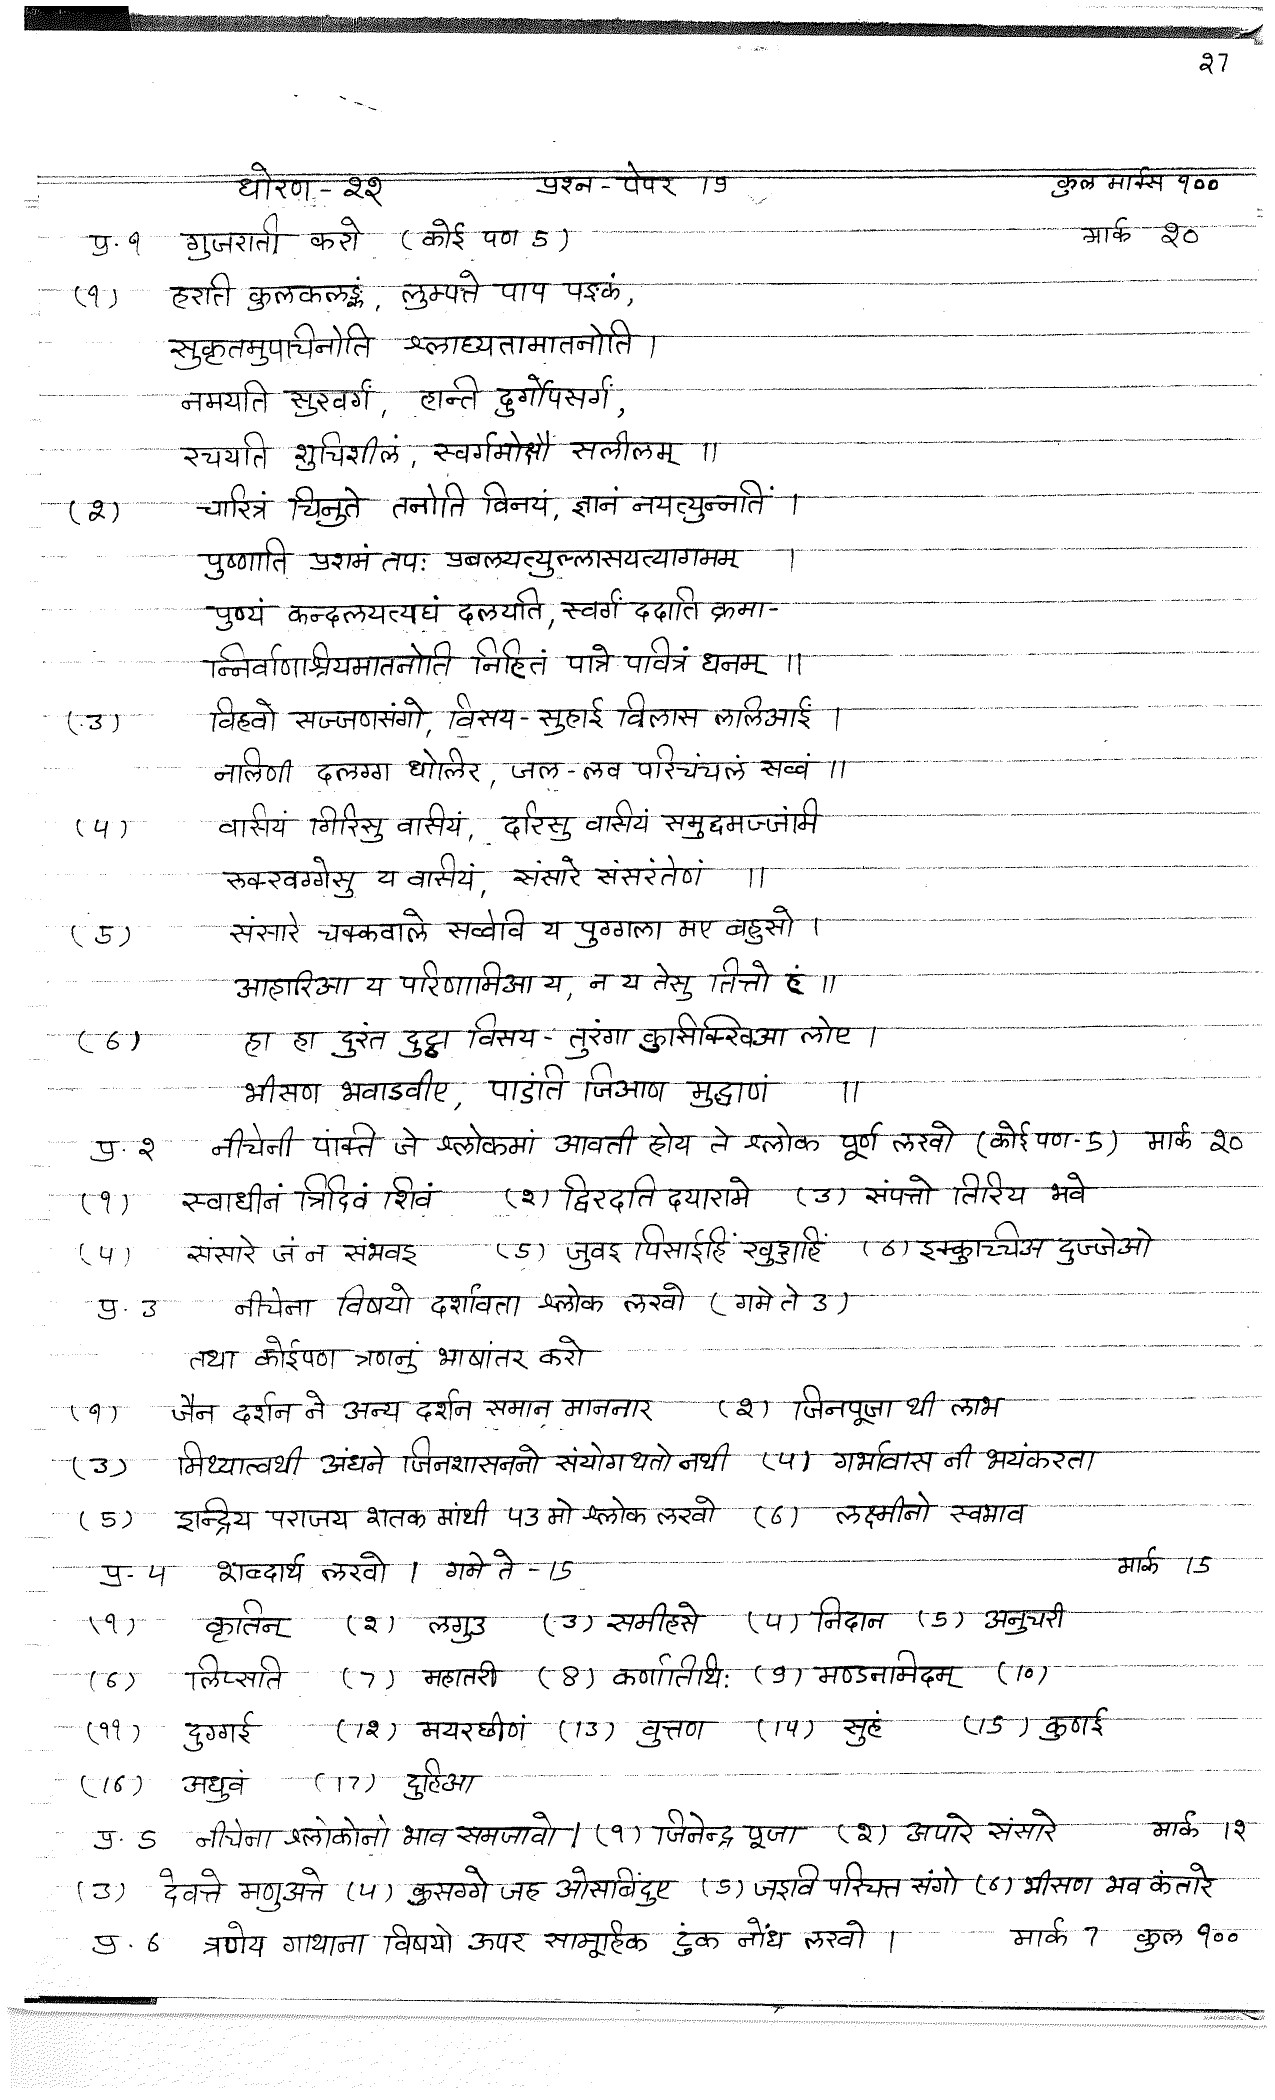 २7
धोरण - २२ प्रश्न - पेपर 19 कुल मार्क्स १००
प्र. १ गुजराती करो (कोई पण 5) मार्क २०
(१) हरति कुलकलङ्कं, लुम्पत्ते पाप पङ्कं,
सुकृतमुपचिनोति श्लाघ्यतामातनोति ।
नमयति सुरवर्गं, हन्ति दुर्गोपसर्गं,
रचयति शुचिशीलं, स्वर्गमोक्षौ सलीलम् ॥
(२) चारित्रं चिनुते तनोति विनयं, ज्ञानं नयत्युन्नतिं ।
पुष्णाति प्रशमं तपः प्रबलयत्युल्लासयत्यागमम् ।
पुण्यं कन्दलयत्यघं दलयति, स्वर्गं ददाति क्रमा-
न्निर्वाणश्रियमातनोति निहितं पात्रे पवित्रं धनम् ॥
(3) विहवो सज्जणसंगो, विसय - सुहाई विलास ललिआई ।
नलिणी दलग्ग घोलिर, जल - लव परिचंचलं सव्वं ॥
(५) वसियं गिरिसु वसियं, दरिसु वसियं समुद्दमज्जंमि
रुक्खग्गेसु य वसियं, संसारे संसरंतेणं ॥
(5) संसारे चक्कवाले सव्वेवि य पुग्गला मए बहुसो ।
आहारिआ य परिणामिआ य, न य तेसु तित्तो हं ॥
(6) हा हा दुरंत दुट्ठा विसय - तुरंगा कुसिक्खिआ लोए ।
भीसण भवाडवीए, पाडंति जिआण मुद्धाणं ॥
प्र. २ नीचेनी पंक्ति जे श्लोकमां आवती होय ते श्लोक पूर्ण लखो (कोई पण - 5) मार्क २०
(१) स्वाधीनं त्रिदिवं शिवं (२) द्विरदति दयारामे (3) संपत्तो तिरिय भवे
(५) संसारे जं न संभवइ (5) जुवइ पिसाईहिं खुड्डाहिं (6) इक्कुच्चिअ दुज्जेओ
प्र. 3 नीचेना विषयो दर्शावता श्लोक लखो (गमे ते 3)
तथा कोईपण त्रणनुं भाषांतर करो
(१) जैन दर्शन ने अन्य दर्शन समान माननार (२) जिनपूजा थी लाभ
(3) मिथ्यात्वथी अंधने जिनशासननो संयोग थतो नथी (५) गर्भावास नी भयंकरता
(5) इन्द्रिय पराजय शतक मांथी ५3 मो श्लोक लखो (6) लक्ष्मीनो स्वभाव
प्र - ५ शब्दार्थ लखो । गमे ते - 15 मार्क 15
(१) कृतिन् (२) लगुड (3) समीहसे (५) निदान (5) अनुचरी
(6) लिप्सति (7) महातरी (8) कर्णातिथिः (9) मण्डनमिदम् (10)
(११) दुग्गई (1२) मयरछीणं (13) वुत्तण (1५) सुहं (15) कुणई
(16) अधुवं (17) दुहिआ
प्र. 5 नीचेना श्लोकोनो भाव समजावो । (१) जिनेन्द्र पूजा (२) अपारे संसारे मार्क 1२
(3) देवत्ते मणुअत्ते (५) कुसग्गे जह ओसबिंदुए (5) जइवि परिचत्त संगो (6) भीसण भव कंतारे
प्र. 6 त्रणेय गाथाना विषयो ऊपर सामूहिक टुंक नोंध लखो । मार्क 7 कुल १००